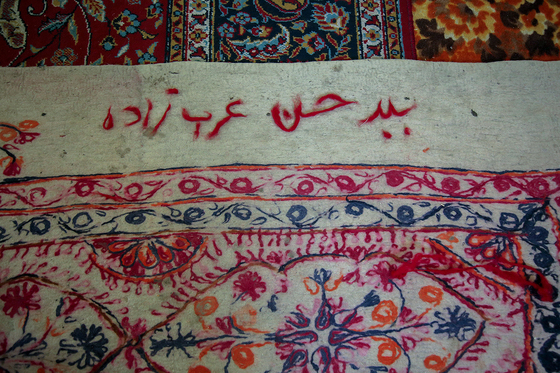 سید حسن عرب زاده